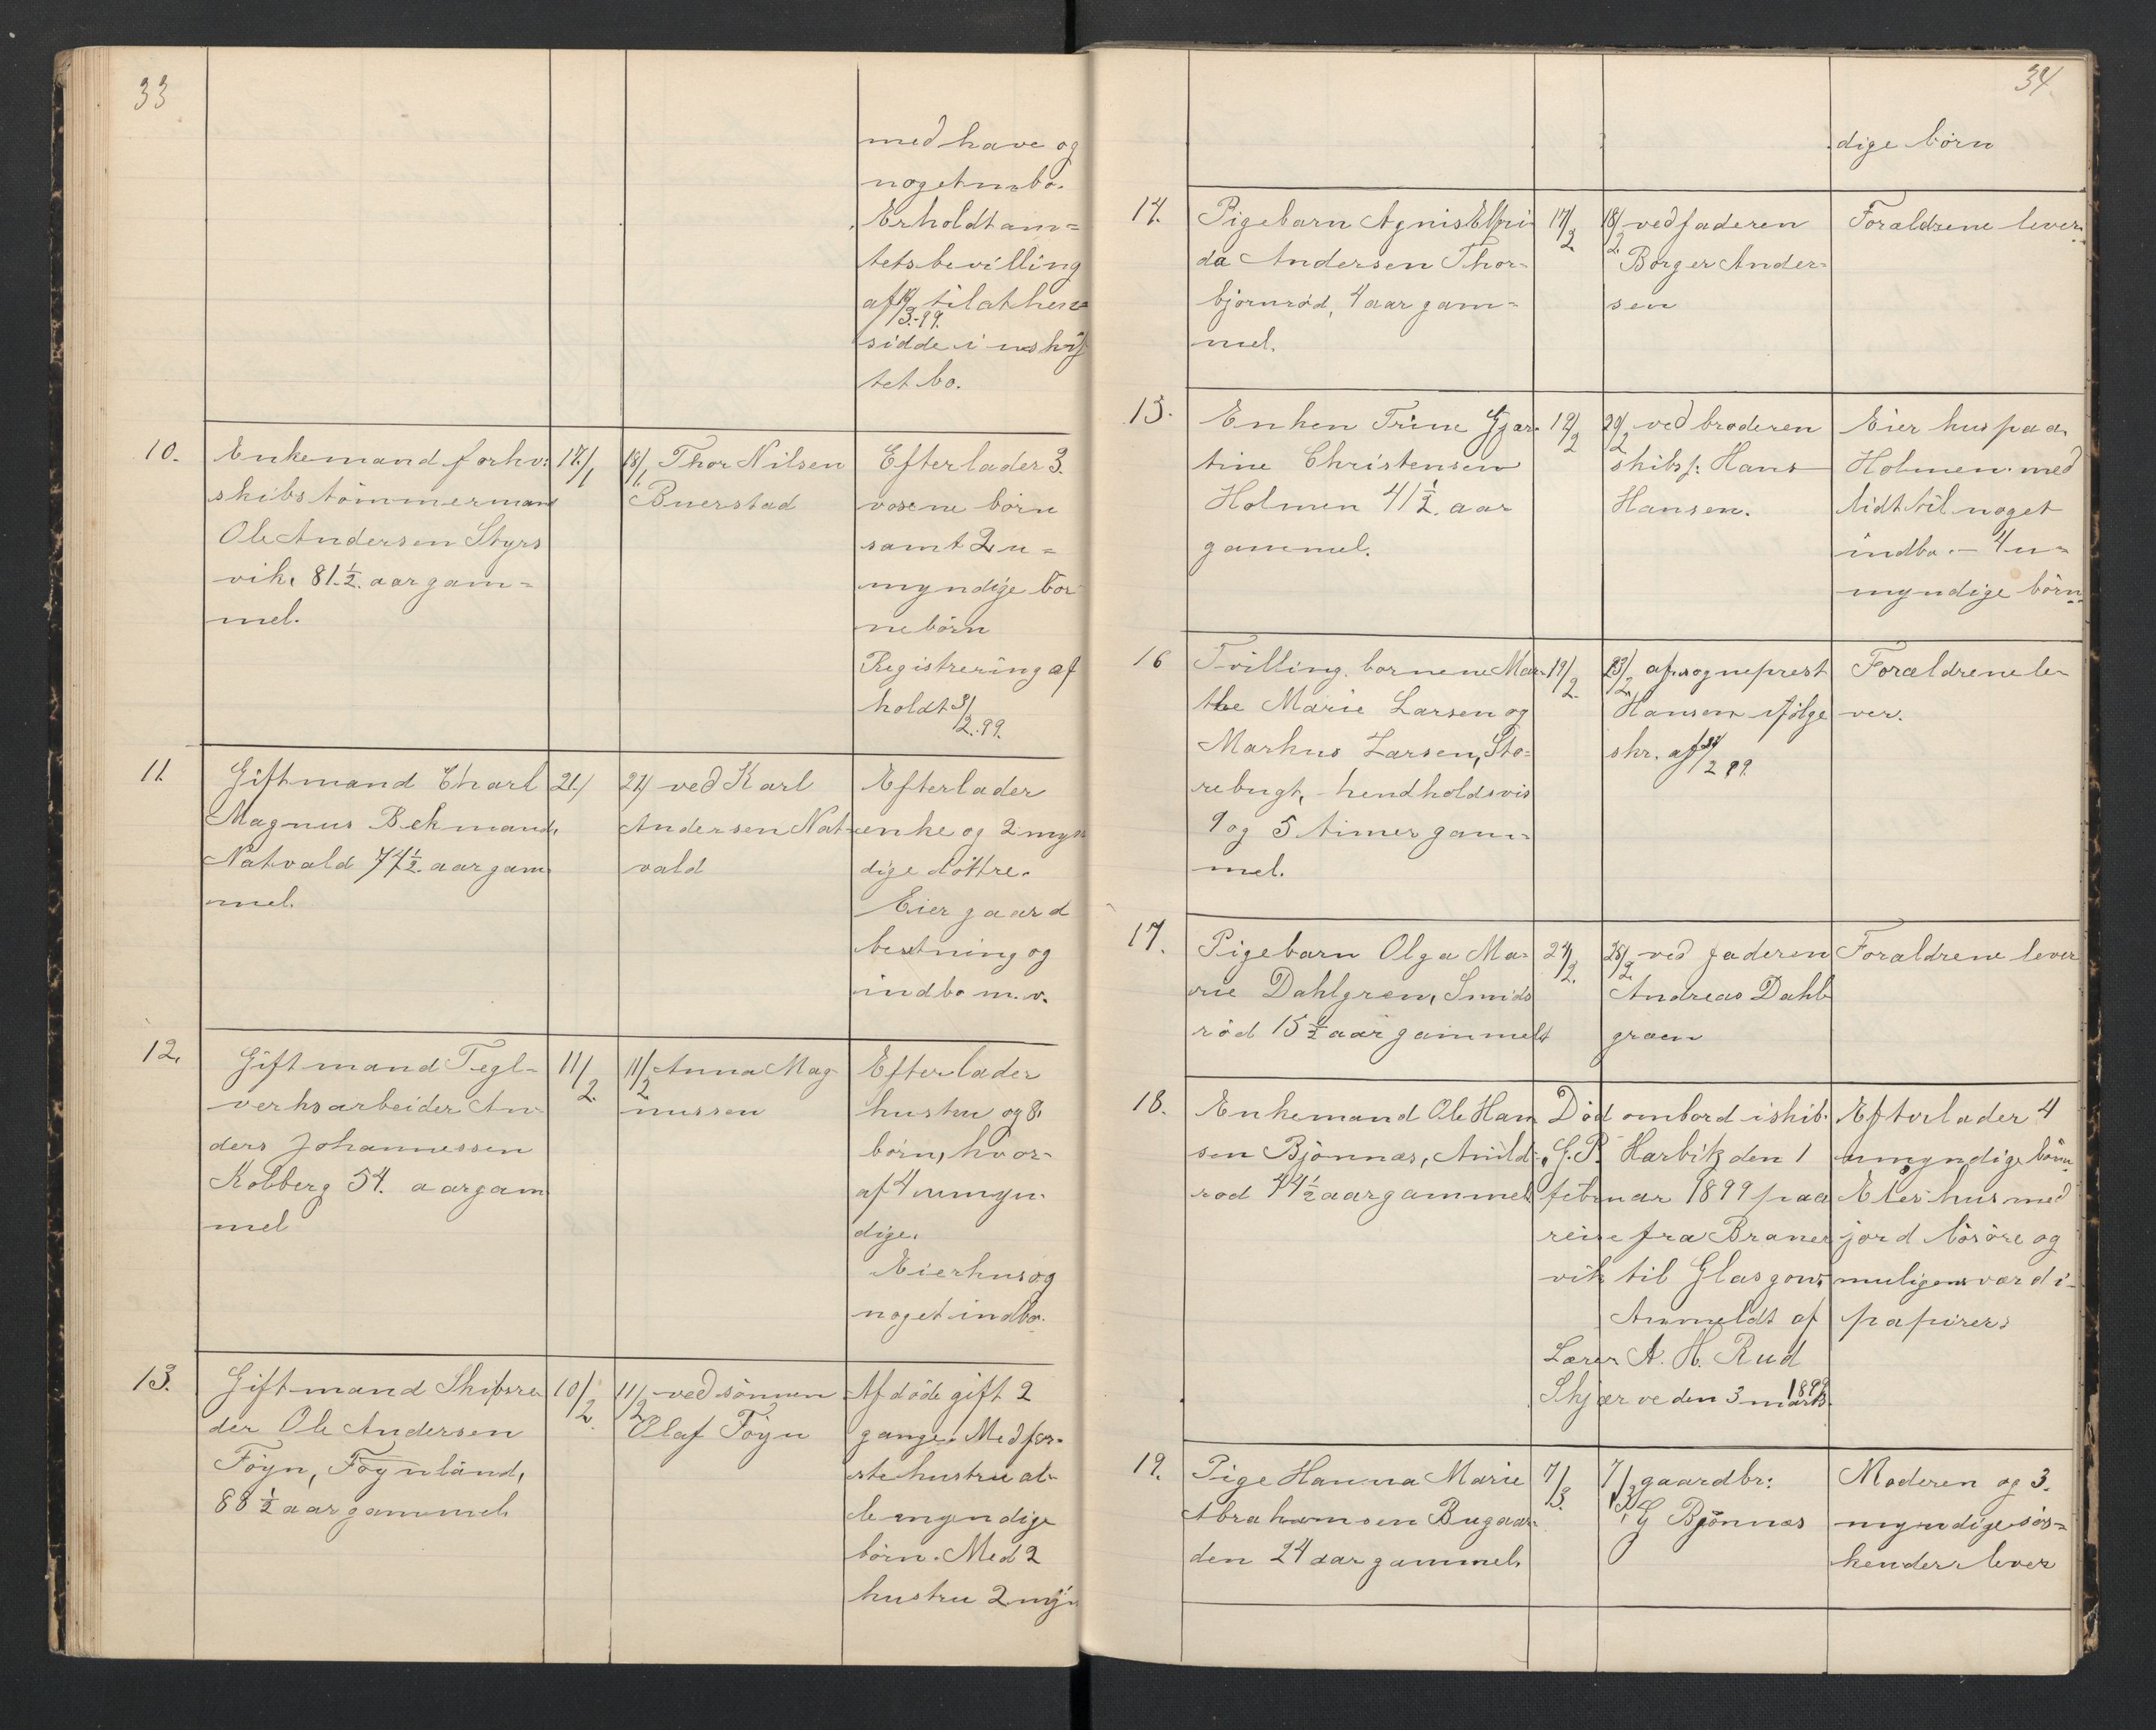 33
med have og
noget inbo.
Erholdt am=
tets bevilling
af 10/3-99. til at hen=
sidde i uskif
tet bo.
10.
Enkemand forhv:
skibstömmermand
Ole Andersen Styrs
vik, 81 1/2. aar gam=
mel.
17./1
18/1 Thor Nilsen
Buerstad
Efterlader 3.
voxne börn
samt 2 u=
myndige bör
nebörn
Registrering af
holdt 3/2.99.
11.
Gift mand Charl
Magnus Bekmand,
Natvald 74 1/2. aar gam
mel.
21/
21/ ved Karl
Andersen Nat-
vald
Efterlader
enke og 2 myn
dige döttre.
Eier gaard
besetning og
indbo m.v.
12.
Gift mand Tegl-
verksarbeider An-
ders Johannessen
Kolberg 54. aar gam
mel
11/2.
11/2 Anna Mag-
nussen
Efterlader
hustru og 8.
börn, hvor-
af 4 umyn-
dige.
Eier hus og
noget indbo.
13.
Gift mand Skibsre
der Ole Andersen
Föyn, Föynland,
88 1/2 aar gammel.
10/2.
11/2 ved sönnen
Olaf Föyn
Afdöde gift 2
gange. Med för-
ste hustru al-
le myndige
börn. Med 2
hustru 2 myn
34
dige börn
14.
Pigebarn Agnis Elfri
da Andersen Thor-
björnröd, 4 aar gam=
mel.
17/2.
18/2. ved faderen
Borger Ander-
sen
Foraldrene lever.
15.
Enken Trine Gjær-
tine Christensen
Holmen 41 1/2. aar
gammel.
19/2
20/2 ved broderen
skibsf: Hans
Hansen.
Eier hus paa
Holmen med
lidt til noget
indbo. - 4 u=
myndige börn.
16
Tvilling. bornene Mar-
the Marie Larsen og
Markus Larsen, Sto-
rebugt, hendholdsvis
9 og 5 timer gam=
mel.
19/2.
23/2. af sogneprest
Hansen ifölge
skr. af 24/2 99.
Foraldrene le-
ver.
17.
Pigebarn Olga Ma-
rie Dahlgren, Smids
röd 15 1/2 aar gammelt
27/2.
28/2. ved faderen
Andreas Dahl-
graen
Foraldrene lever
18.
Enkemand Ole Han
sen Bjönnæs, Arild-
rod 44 1/2 aar gammel
Död ombord i skib.
G. P. Harbitz den 1
februar 1899 paa
reise fra Braner
vik til Glasgow.
Anmeldt af
Lærer A. H. Rud
Skjærve den 3 marts 1899.
Efterlader 4
umyndige börn
Eier hus med
jord lösöre og
muligens værdi-
papirer.
19.
Pige Hanna Marie
Abrahamsen Bugaar-
den 24 aar gammel.
7/3.
7/3 gaardbr:
G Bjönnæs
Moderen og 3.
myndige sös=
kender lever